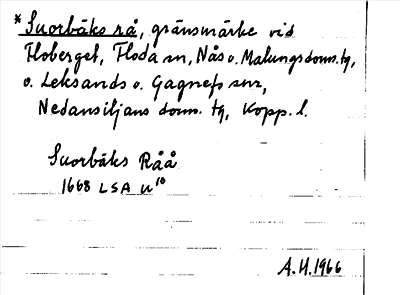 * Suorbäks rå, gränsmärke vid
Floberget, Floda sn, Nås o. Malungs doms. tg,
o. Leksands o. Gagnefs snr,
Nedansiljans doms. tg, Kopp. l.
Suorbäks Råå
1668 LSA U¹⁰
A.U. 1966